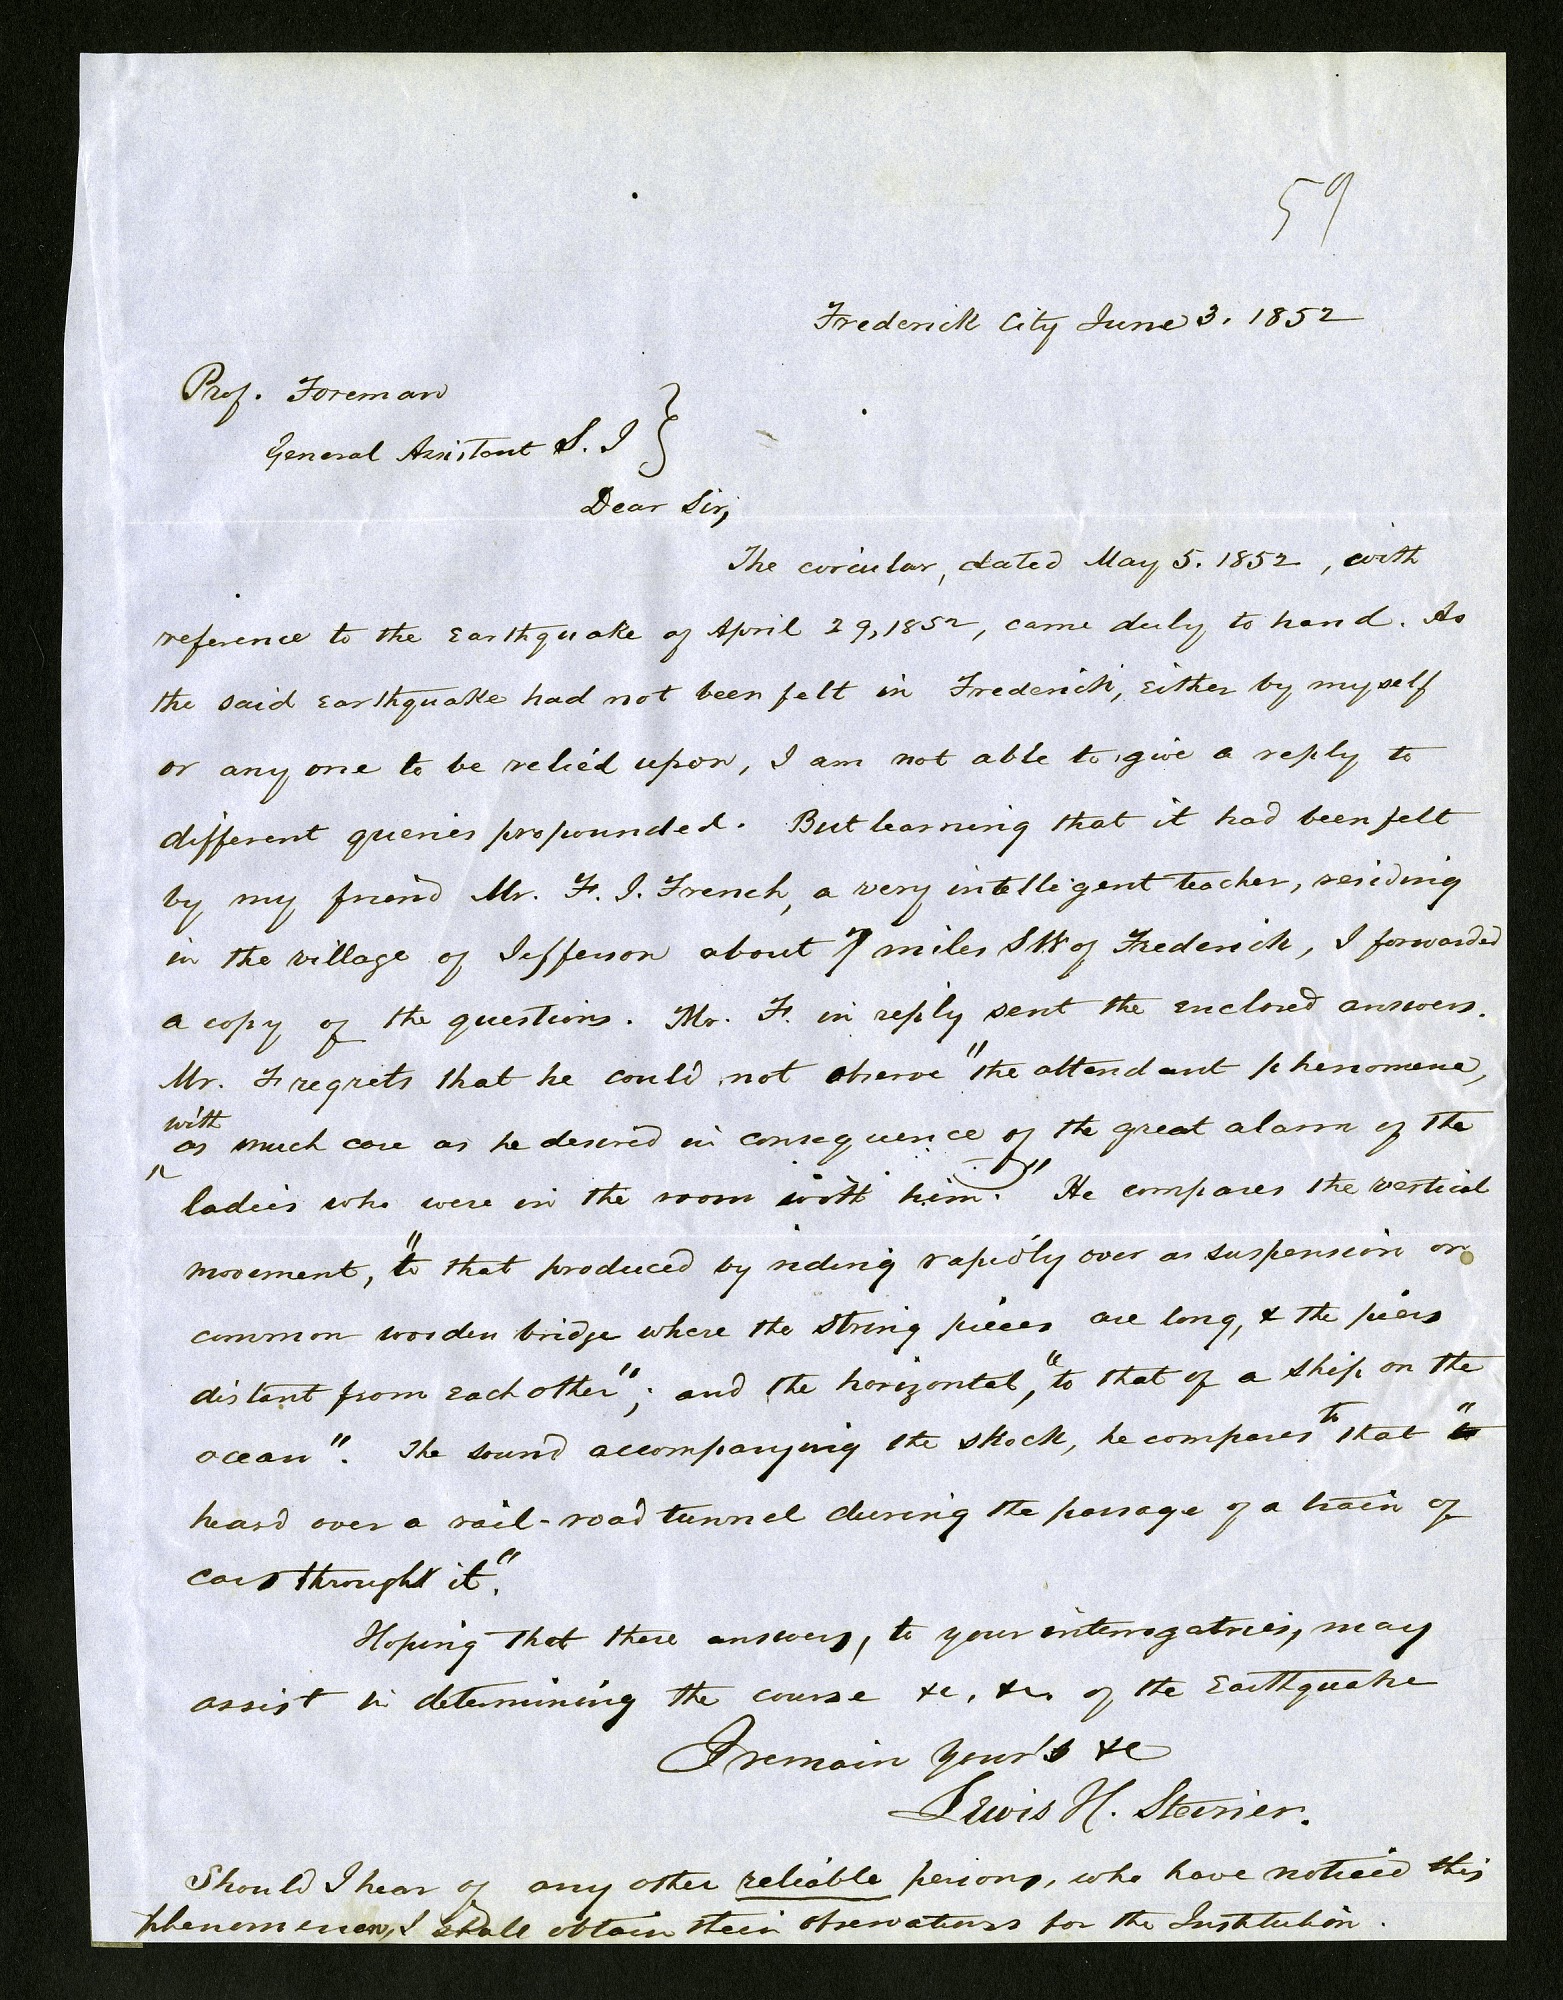 59
Frederick City June 3. 1852
Prof. Foreman
General Assistant S. I }
Dear Sir,
The circular, dated May 5. 1852, with
reference to the Earthquake of April 29, 1852, came duly to hand. As
the said Earthquake had not been felt in Frederick, Either by myself
or any one to be relied upon, I am not able to give a reply to
different queries propounded. But learning that it had been felt
by my friend Mr. F. I. French, a very intelligent teacher, residing
in the village of Jefferson about 7 miles SW of Frederick, I forwarded
a copy of the questions. Mr. F. in reply sent the Enclosed answers.
Mr. F regrets that he could not observe "the attendant phenomena,
with
as much care as he desired in consequence of the great alarm of the
ladies who were in the room with him." He compares the vertical
movement, "to that produced by riding rapidly over a suspension or
common wooden bridge where the string pieces are long, & the piers
distant from Each other"; and the horizontal, "to that of a ship on the
ocean". The sound accompanying the shock, he compares to that "
heard over a rail-road tunnel during the passage of a train of
cars through it".
Hoping that these answers, to your interrogatries, may
assist in determining the course &c, &c. of the Earthquake
I remain your's &c
Lewis H. Steiner.
Should I hear of any other reliable persons, who have noticed this
phenomenon, I shall obtain their observations for the Institution.